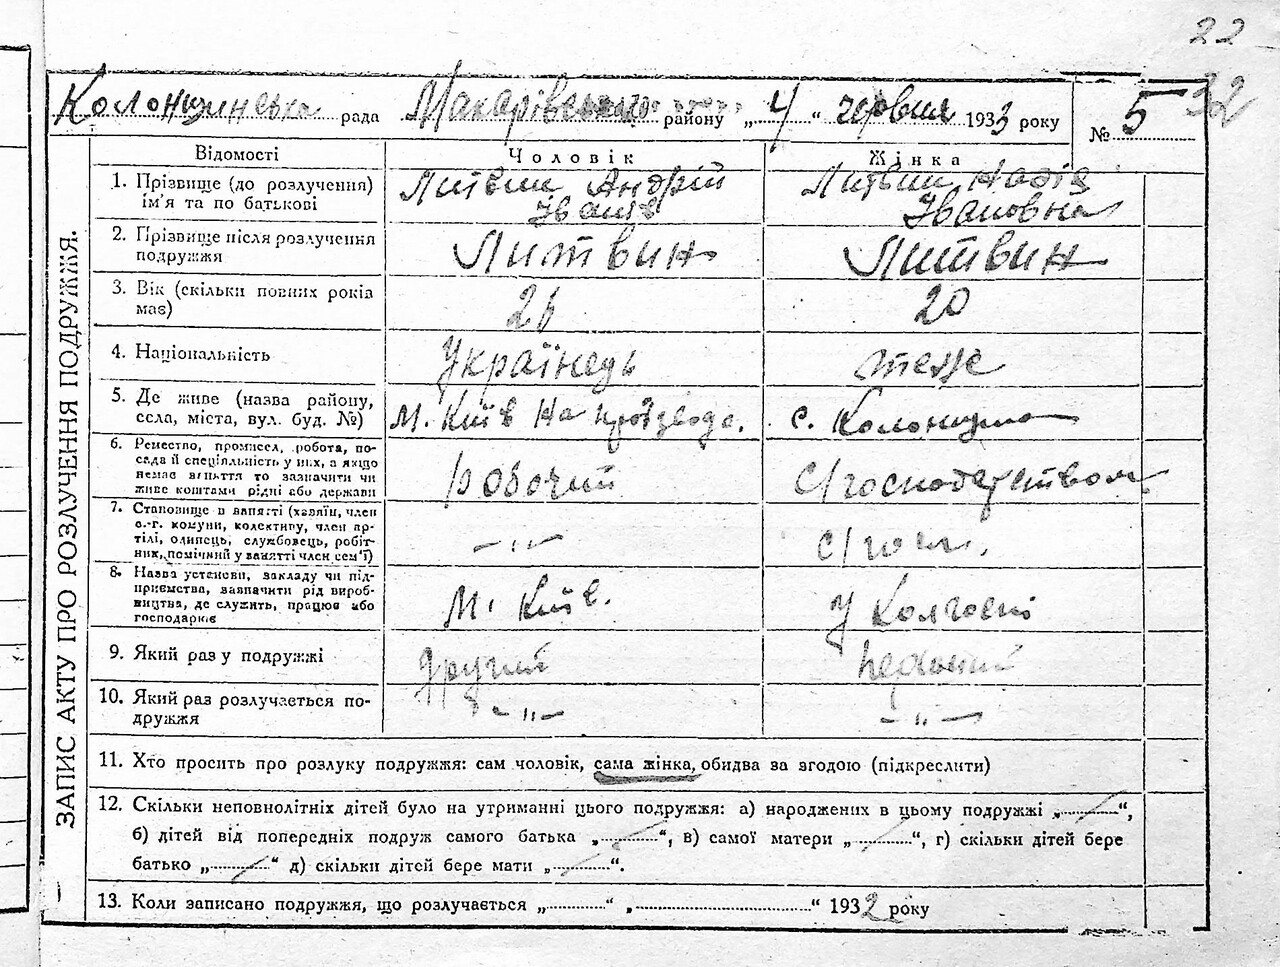 22
32
Колонщинська рада Макарівського району „ 4 “ червня 1933 року № 5
ЗАПИС АКТУ ПРО РОЗЛУЧЕННЯ ПОДРУЖЖЯ.
Відомості Чоловік Жінка
1. Прізвище (до розлучення) ім'я та по батькові Литвин Андрій Іванів Литвин Надія Івановна
2. Прізвище після розлучення подружжя Литвин Литвин
3. Вік (скільки повних років має) 26 20
4. Національність Українець теж
5. Де живе (назва району, села, міста, вул. буд. №) М. Київ на проізводс. с. Колонщина
6. Ремество, промисел, робота, посада й спеціяльність у них, а якщо немає заняття то зазначити чи живе коштами рідні або держави робочий С/господарством
7. Становище в занятті (хазяїн, член с.-г. комуни, колективу, член артілі, одинець, службовець, робітник, помічний у занятті член сем'ї) — „ — С/госп.
8. Назва установи, закладу чи підприємства, зазначити рід виробництва, де служить, працює або господарює М. Київ. У Колгоспі
9. Який раз у подружжі другий первий
10. Який раз розлучається подружжя — „ — — „ —
11. Хто просить про розлуку подружжя: сам чоловік, сама жінка, обидва за згодою (підкреслити)
12. Скільки неповнолітніх дітей було на утриманні цього подружжя: а) народжених в цьому подружжі „ — “,
б) дітей від попередніх подруж самого батька „ — “, в) самої матери „ — “, г) скільки дітей бере
батько „ — “ д) скільки дітей бере мати „ — “.
13. Коли записано подружжя, що розлучається „..........“ „..............................“ 1932 року